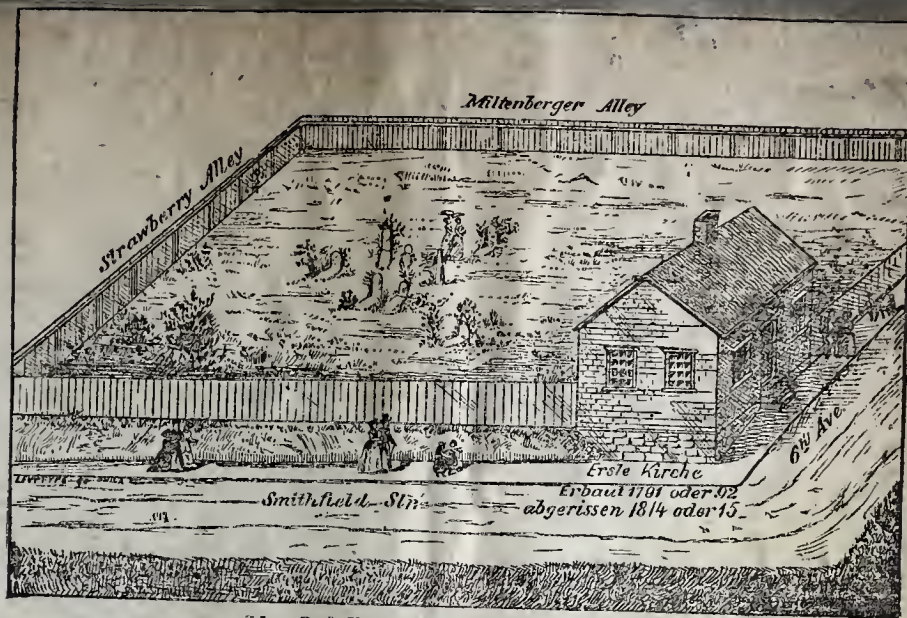 Miltenberger Alley
Strawberry Alley
6th Ave.
Erste Kirche
Erbaut 1791 oder 92
abgerissen 1814 oder 15
Smithfield Str.